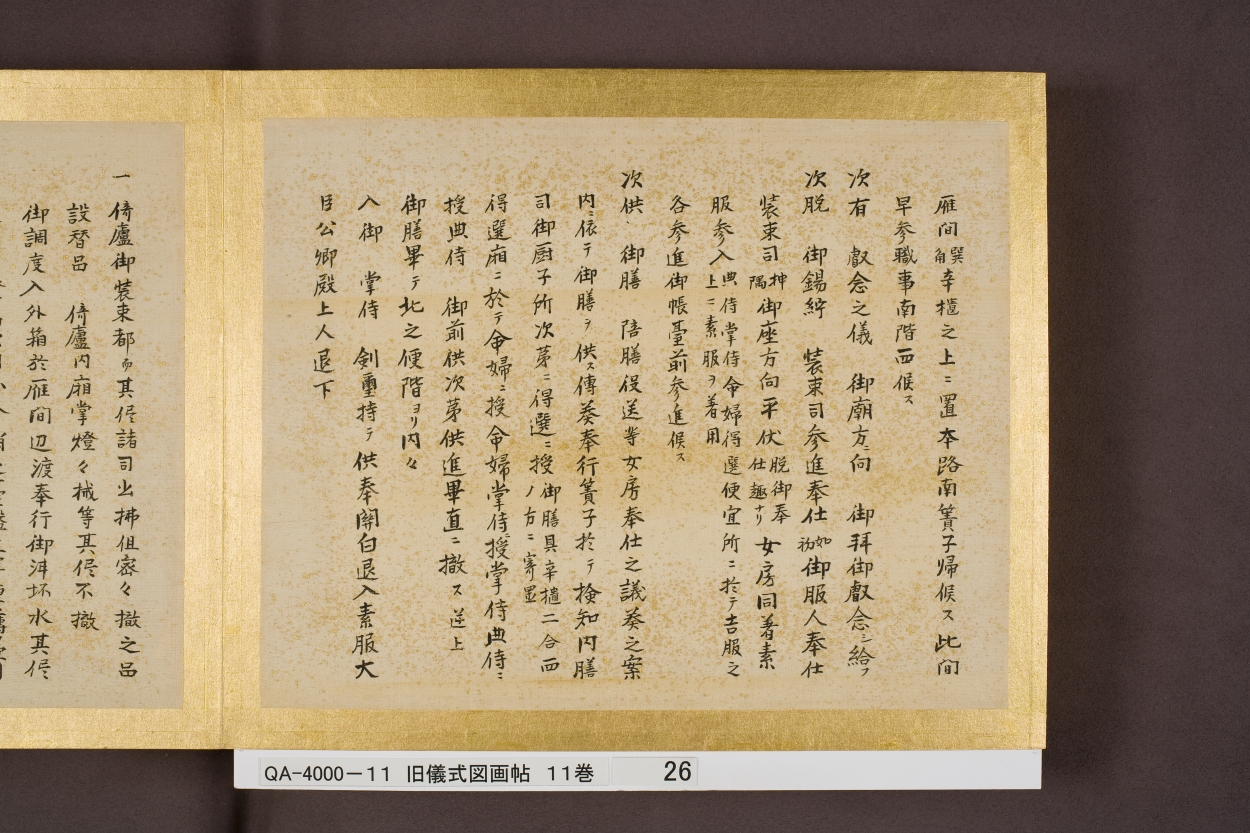 雁間巽角辛櫃之上ニ置本路南簀子帰候ス此間
早参職事南階西候ス
次有　叡念之儀　御廟方ニ向　御拝御叡念ヲ給フ
次脱　御錫紵　装束司参進奉仕如初御服人奉仕
装束司坤隅御座方向平伏脱御奉仕趣ナリ女房同着素
服参入典侍掌侍命婦得選便宜所ニ於テ吉服之上ニ素服ヲ着用
各参進御帳臺前参進候ス
次供　御膳　陪膳役送等女房奉仕之議奏之案
内ニ依テ御膳ヲ供ス傳奏奉行簀子於テ検知内膳
司御厨子所次第ニ得選ニ授御膳具辛櫃二合西ノ方ニ寄置
得選廂ニ於テ命婦ニ授命婦掌侍授掌侍典侍ニ
授典侍　御前供次第供進畢直ニ撤ス逆上
御膳畢テ北之便階ヨリ内々
入御　掌侍　剣璽持テ供奉関白退入素服大
臣公卿殿上人退下
一　倚廬御装束都而其侭諸司出拂但密々撤之品
設替品　倚廬内廂掌燈々械等其侭不撤
御調度入外箱於雁間辺渡奉行御洋坏水其侭
QA-4000-11　旧儀式図画帖　11巻　26